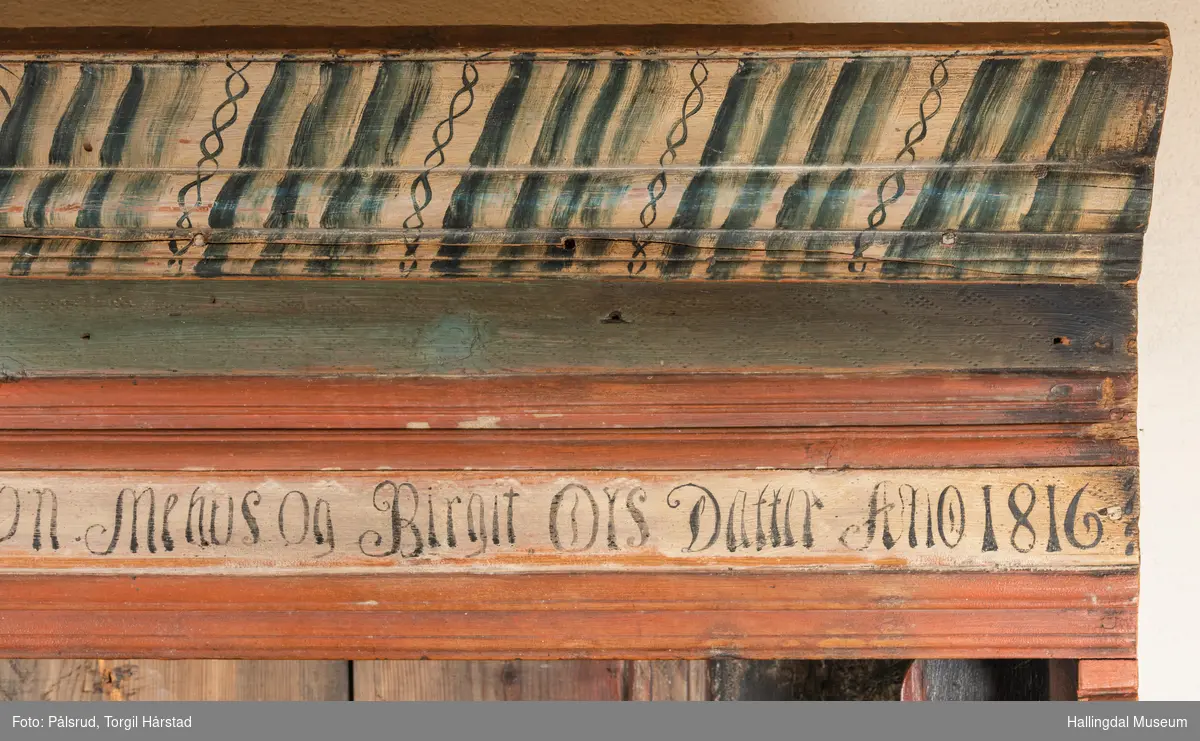 on. Mehus Og Birgit Ols Datter Ano 1816
Foto: Pålsrud, Torgil Hårstad
Hallingdal Museum